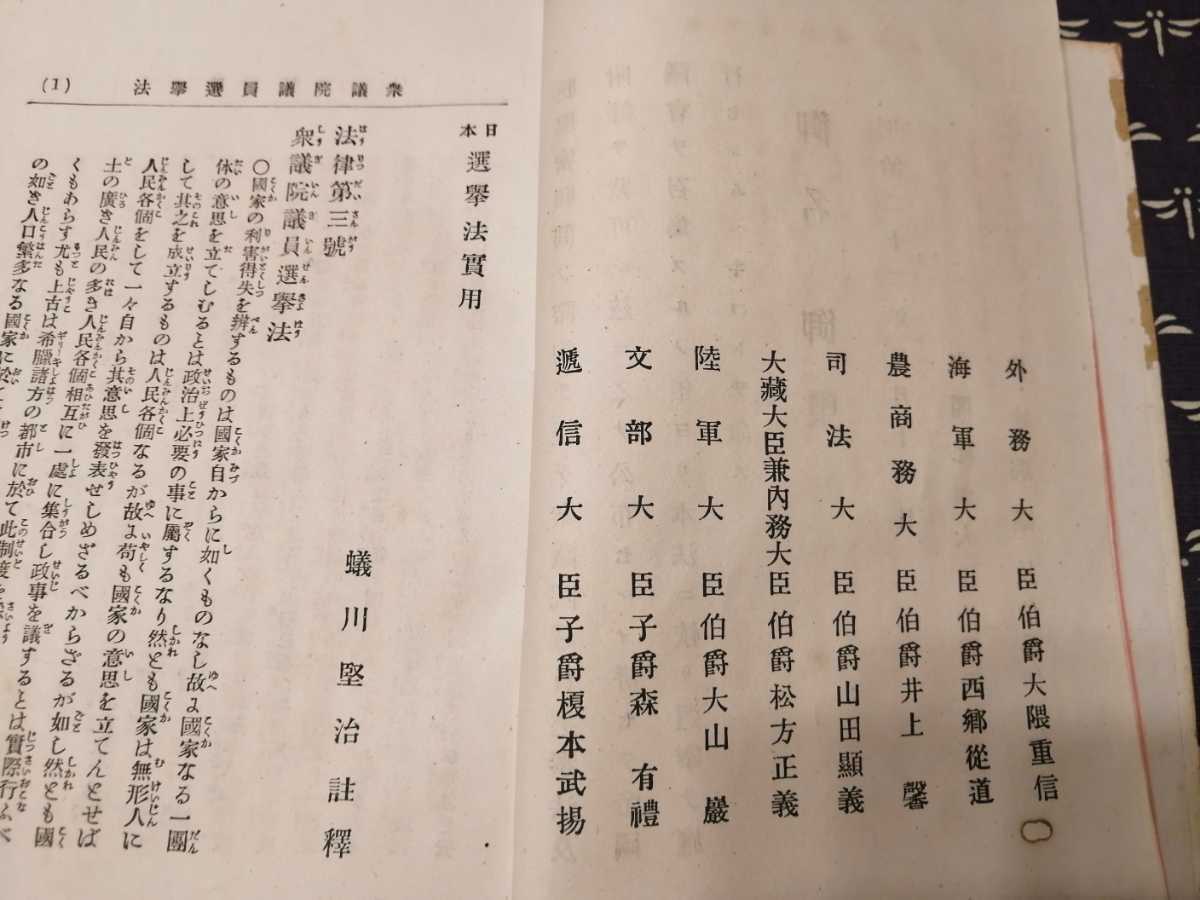 外務大臣伯爵大隈重信
海軍大臣伯爵西鄕從道
農商務大臣伯爵井上馨
司法大臣伯爵山田顯義
大藏大臣兼內務大臣伯爵松方正義
陸軍大臣伯爵大山巖
文部大臣子爵森有禮
遞信大臣子爵榎本武揚
衆議院議員選擧法
(1)
日本 選擧法實用
蟻川堅治註釋
法律第三號
衆議院議員選擧法
〇國家の利害得失を辨するものは國家自からに如くものなし故に國家なる一團
体の意思を立てしむるとは政治上必要の事に屬するなり然とも國家は無形人に
して其之を成立するものは人民各個なるが故に苟も國家の意思を立てんとせば
人民各個をして一々自から其意思を發表せしめざるべからざるが如し然とも國
土の廣き人民の多き人民各個相互に一處に集合し政事を議するとは實際行ふべ
くもあらす尤も上古は希臘諸方の都市に於て此制度を
の如き人口繁多なる國家に於て